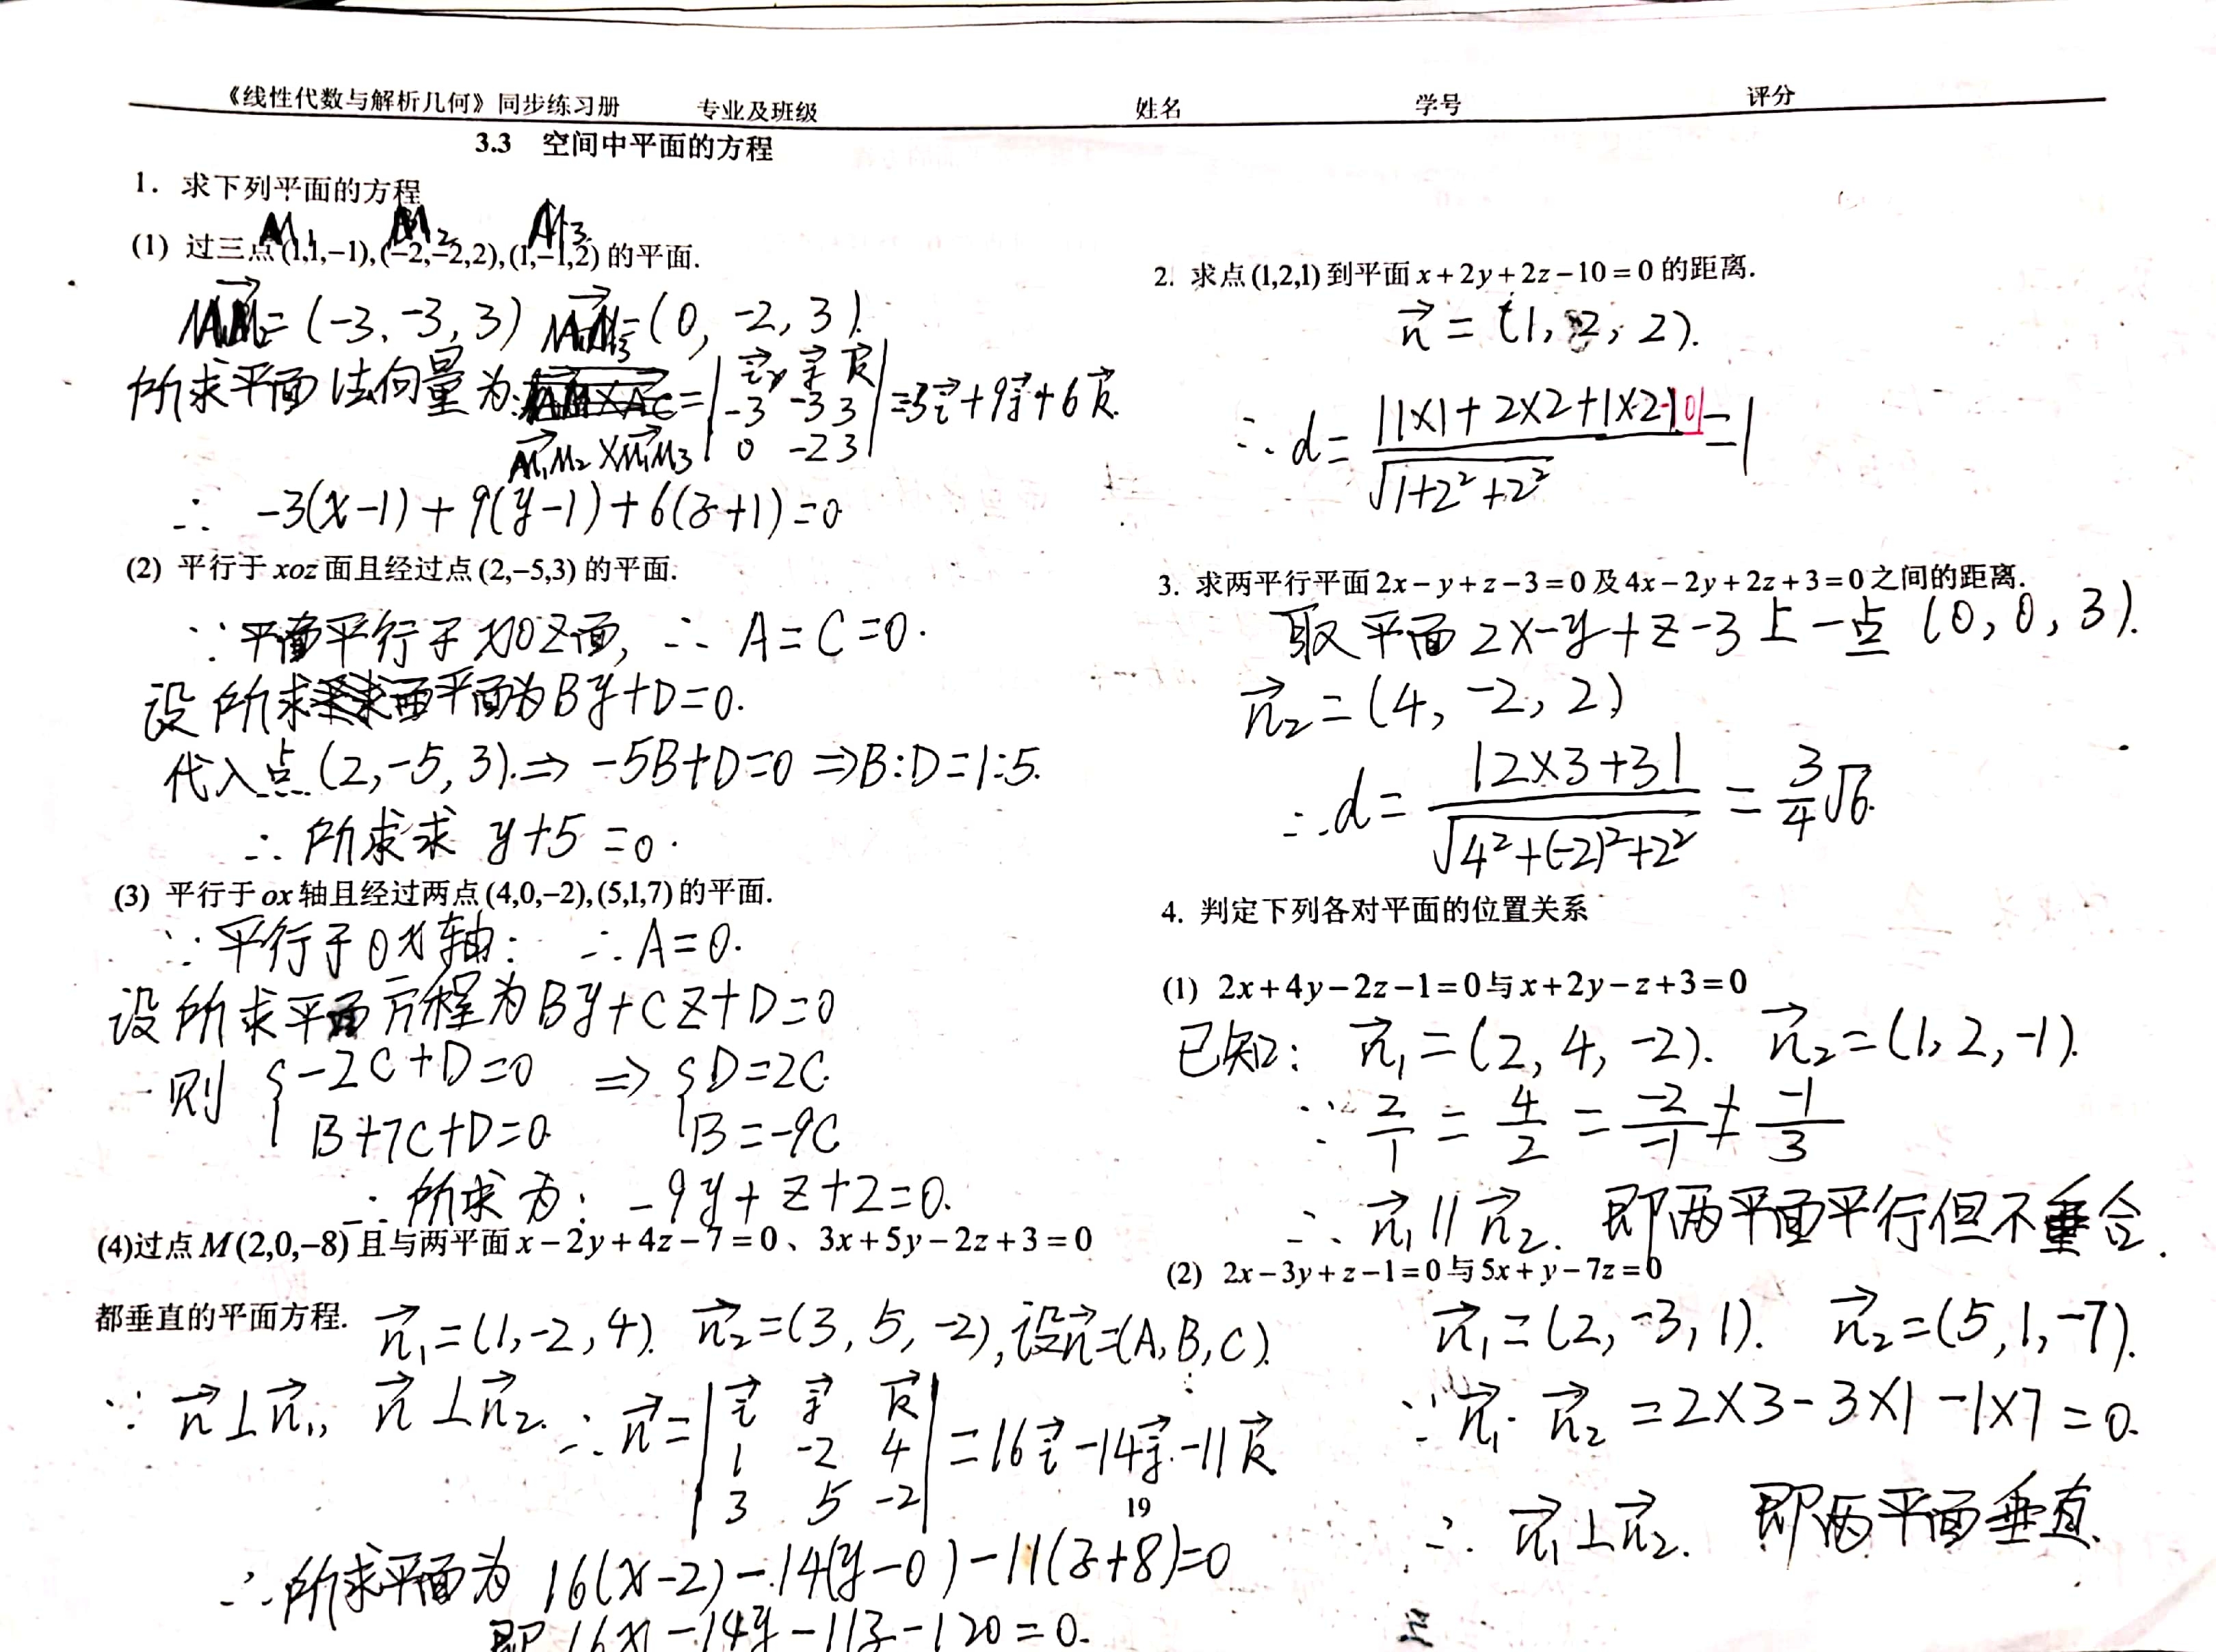 《线性代数与解析几何》同步练习册 专业及班级 姓名 学号 评分
3.3 空间中平面的方程
1. 求下列平面的方程
M₁ M₂ M₃
(1) 过三点(1,1,−1),(−2,−2,2),(1,−1,2)的平面.
M₁M₂=(-3,-3,3) M₁M₃=(0,-2,3).
所求平面法向量为: M₁M₂×M₁M₃ = |i j k; -3 -3 3; 0 -2 3| =-3i+9j+6k.
∴ -3(x-1)+9(y-1)+6(z+1)=0
(2) 平行于xoz面且经过点(2,−5,3)的平面.
∵平面平行于xoz面, ∴ A=C=0.
设所求平面为By+D=0.
代入点(2,-5,3).⇒ -5B+D=0 ⇒B:D=1:5.
∴ 所求求 y+5=0.
(3) 平行于ox轴且经过两点(4,0,−2),(5,1,7)的平面.
∵平行于ox轴: ∴A=0.
设所求平面方程为By+Cz+D=0
则 {-2C+D=0 ⇒ {D=2C.
B+7C+D=0. B=-9C
∴所求为: -9y+z+2=0.
(4)过点M(2,0,−8)且与两平面x−2y+4z−7=0、3x+5y−2z+3=0
都垂直的平面方程.
n₁=(1,-2,4). n₂=(3,5,-2),设n=(A,B,C).
∵ n⊥n₁, n⊥n₂. ∴n=|i j k; 1 -2 4; 3 5 -2|=16i-14j-11k
∴所求平面为 16(x-2)-14(y-0)-11(z+8)=0
即 16x-14y-11z-120=0.
2. 求点(1,2,1)到平面x+2y+2z−10=0的距离.
n=(1,2,2).
∴ d= |1×1+2×2+1×2-10| / √(1+2²+2²) =1
3. 求两平行平面2x−y+z−3=0及4x−2y+2z+3=0之间的距离.
取平面2x-y+z-3上一点(0,0,3).
n₂=(4,-2,2)
∴d= |2×3+3| / √(4²+(-2)²+2²) = 3/4 √6.
4. 判定下列各对平面的位置关系
(1) 2x+4y−2z−1=0与x+2y−z+3=0
已知: n₁=(2,4,-2). n₂=(1,2,-1).
∵ 2/1 = 4/2 = -2/-1 ≠ -1/3
∴ n₁∥n₂. 即两平面平行但不重合.
(2) 2x−3y+z−1=0与5x+y−7z=0
n₁=(2,-3,1). n₂=(5,1,-7).
∵n₁·n₂=2×3-3×1-1×7=0.
∴ n₁⊥n₂. 即两平面垂直.
19